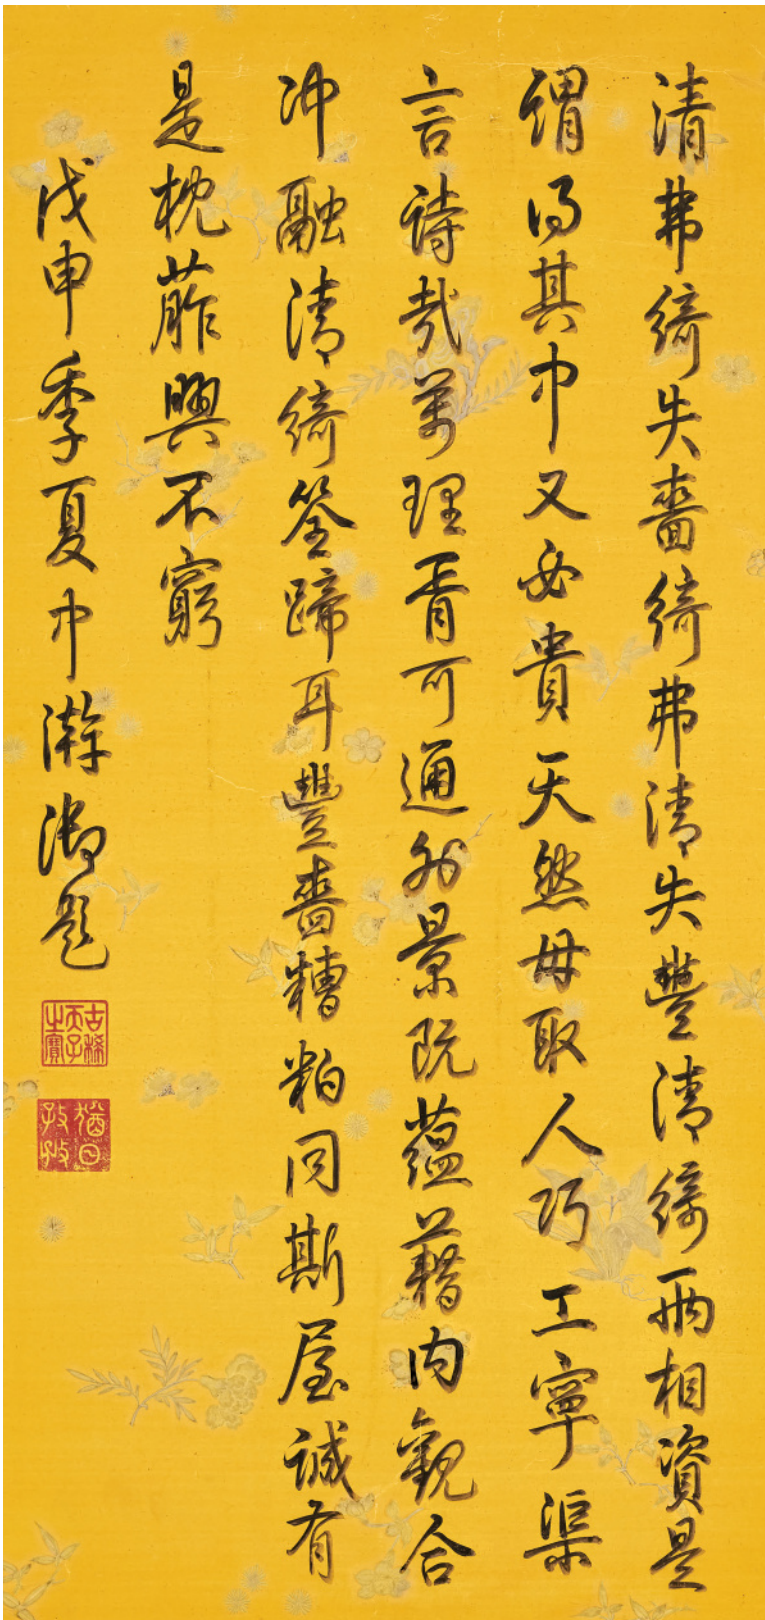 清弗綺失嗇綺弗清失豐清綺兩相資是
謂得其中又必貴天然毋取人巧工寧渠
言詩哉萬理胥可通外景既蘊藉内觀合
沖融清綺筌蹄耳豐嗇糟粕同斯屋誠有
是枕葄興不窮
戊申季夏中澣御題
古稀天子之寶
猶日孜孜